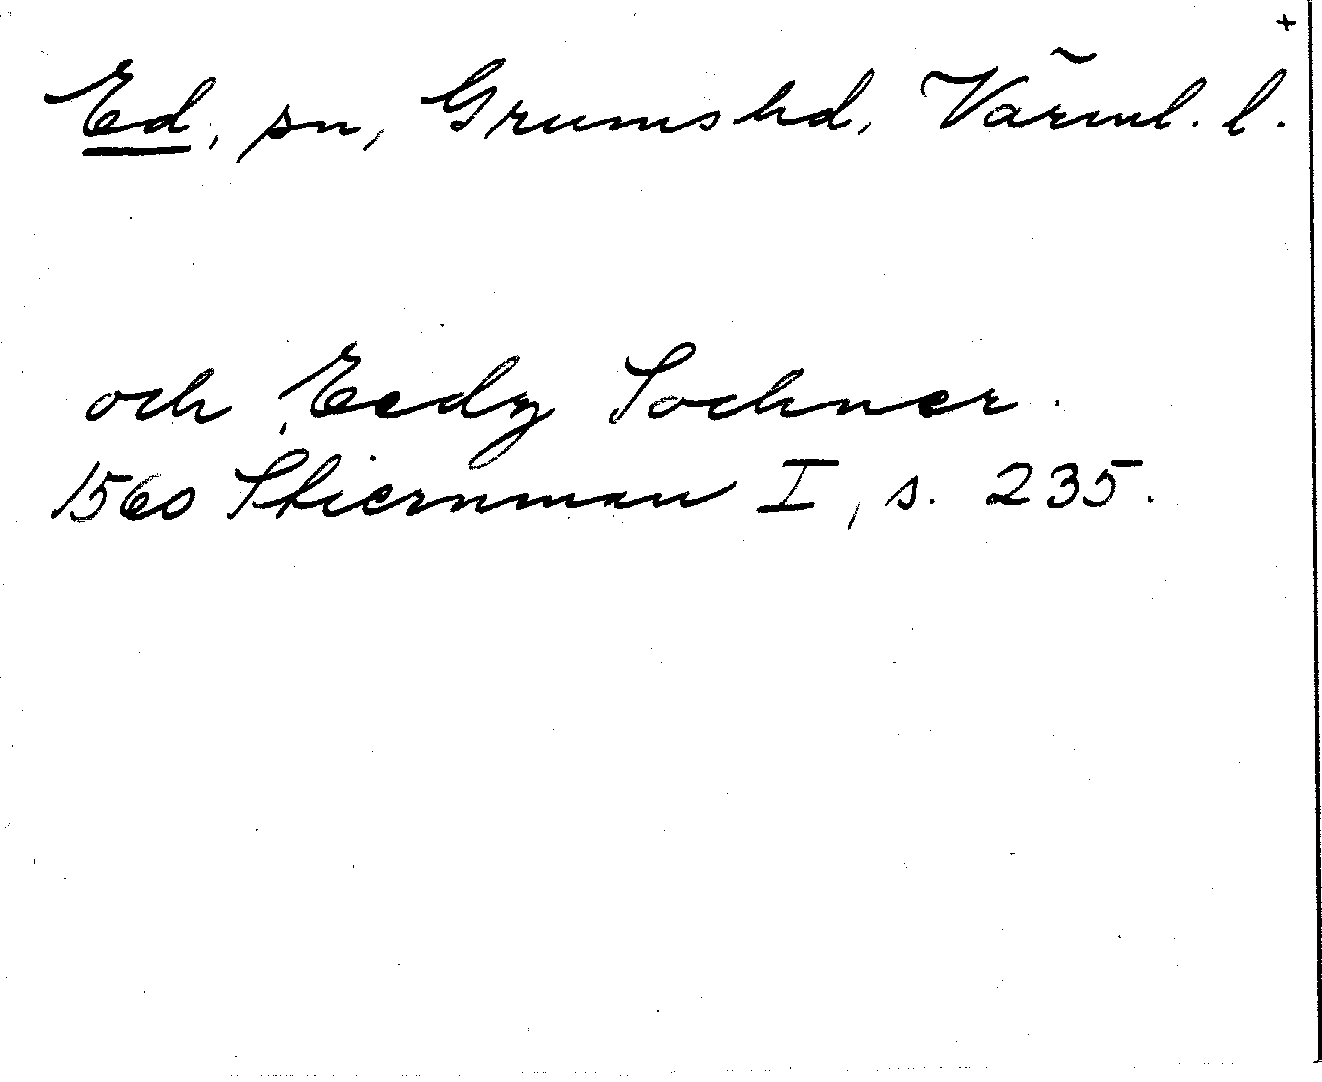 +
Ed, sn, Grums hd, Värml. l.
och Eedz Sochner.
1560 Stiernman I, s. 235.